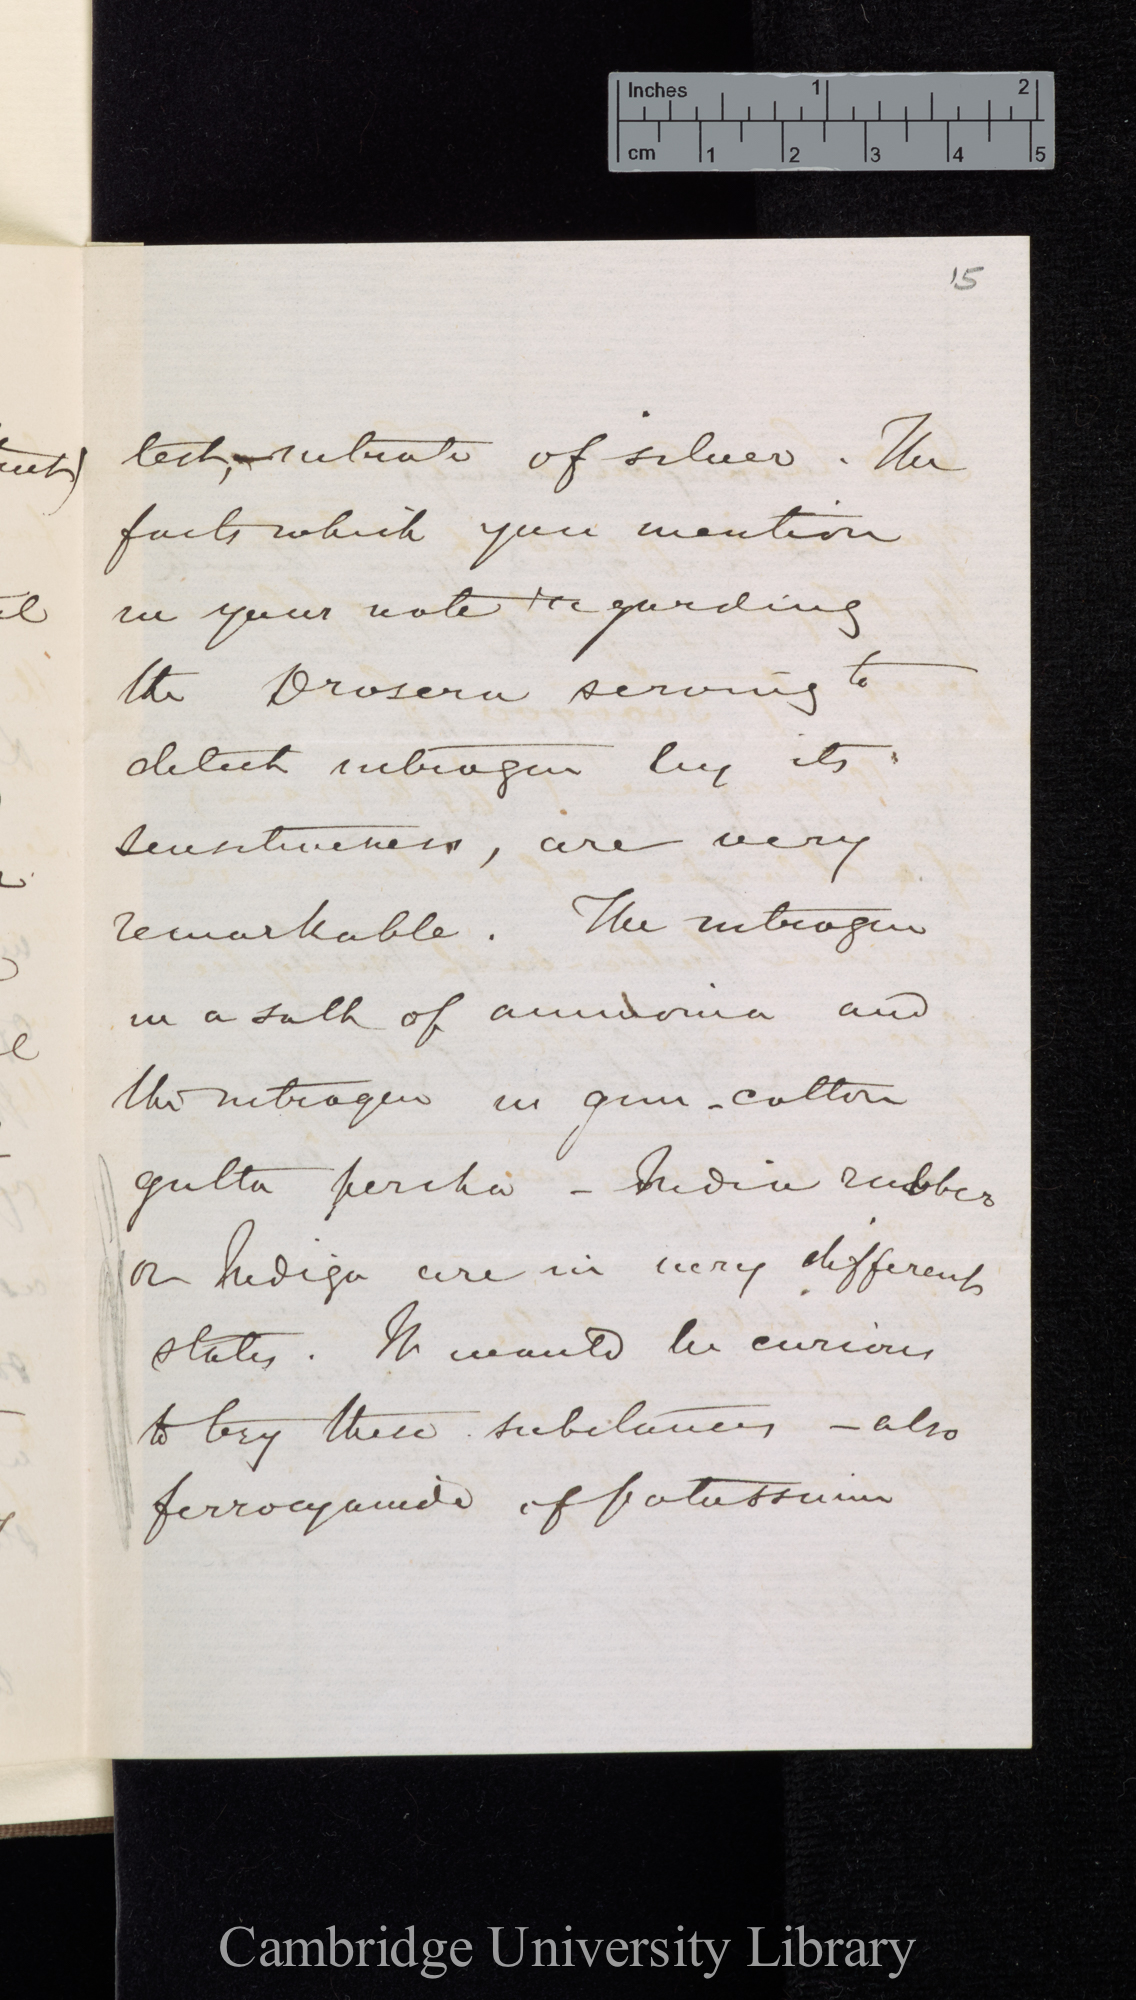 Inches 1 2
cm 1 2 3 4 5
15
test, – nitrate of silver. The
facts which you mention
in your note regarding
the Drosera serving to
detect nitrogen by its
sensitiveness, are very
remarkable. The nitrogen
in a salt of ammonia and
the nitrogen in gun-cotton
gutta percha – India rubber
or Indigo are in very different
states. It would be curious
to try these substances – also
ferrocyanide of potassium
Cambridge University Library